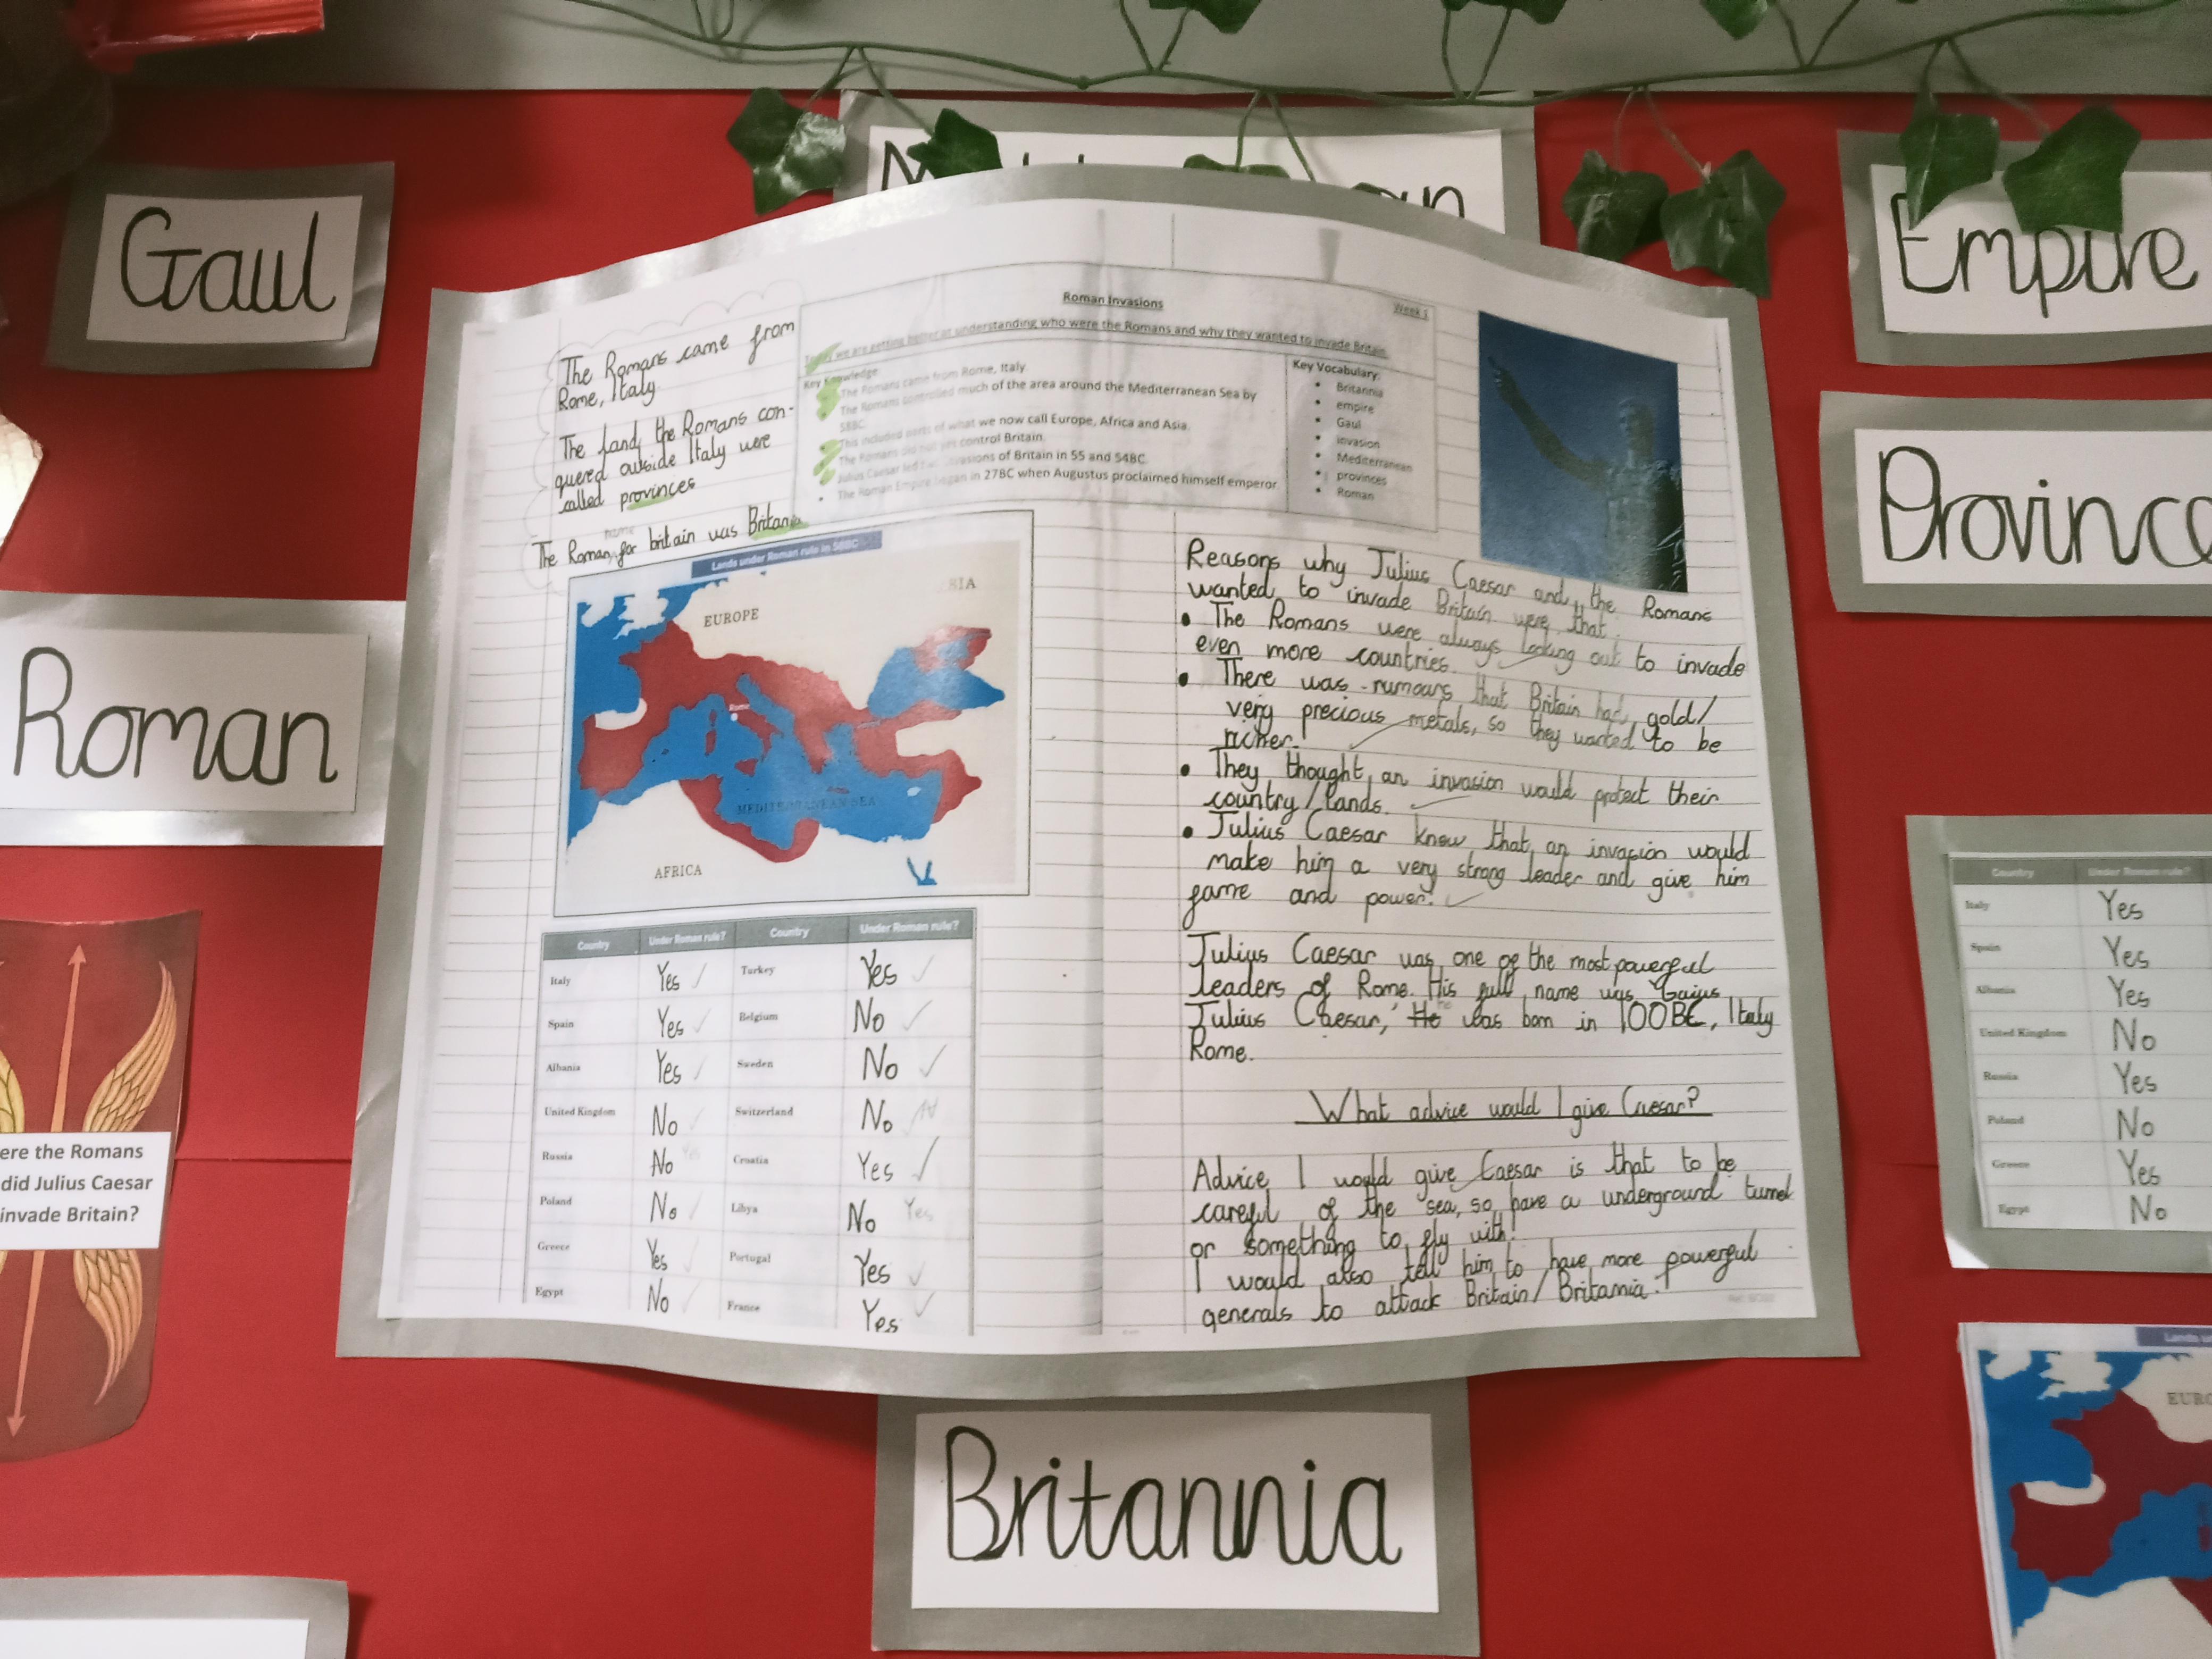 Gaul
Empire
Province
Roman
Britannia
ere the Romans
did Julius Caesar
invade Britain?
The Romans came from
Rome, Italy
The land the Romans con-
quered outside Italy were
called provinces
name
The Roman for britain was Britania
Roman Invasions
Week 1
Today we are getting better at understanding who were the Romans and why they wanted to invade Britain
Key Knowledge
The Romans came from Rome, Italy
The Romans controlled much of the area around the Mediterranean Sea by
58BC.
This included parts of what we now call Europe, Africa and Asia.
The Romans did not yet control Britain.
Julius Caesar led two invasions of Britain in 55 and 54BC.
The Roman Empire began in 27BC when Augustus proclaimed himself emperor
Key Vocabulary:
Britannia
empire
Gaul
invasion
Mediterranean
provinces
Roman
Lands under Roman rule in 58BC
EUROPE
Rome
MEDITERRANEAN SEA
AFRICA
Country Under Roman rule? Country Under Roman rule?
Italy Yes Turkey Yes
Spain Yes Belgium No
Albania Yes Sweden No
United Kingdom No Switzerland No
Russia No Yes Croatia Yes
Poland No Libya No Yes
Greece Yes Portugal Yes
Egypt No France Yes
Reasons why Julius Caesar and the Romans
wanted to invade Britain were that.
The Romans were always looking out to invade
even more countries.
There was rumours that Britain had gold/
very precious metals, so they wanted to be
richer.
They thought an invasion would protect their
country/lands.
Julius Caesar knew that an invasion would
make him a very strong leader and give him
fame and power.
Julius Caesar was one of the most powerful
leaders of Rome. His full name was "Gaius
Julius Caesar," He was born in 100BC, Italy
Rome.
What advice would I give Caesar?
Advice I would give Caesar is that to be
careful of the sea, so have a underground tunnel
or something to fly with!
I would also tell him to have more powerful
generals to attack Britain/Britania.
Country Under Roman rule?
Italy Yes
Spain Yes
Albania Yes
United Kingdom No
Russia Yes
Poland No
Greece Yes
Egypt No